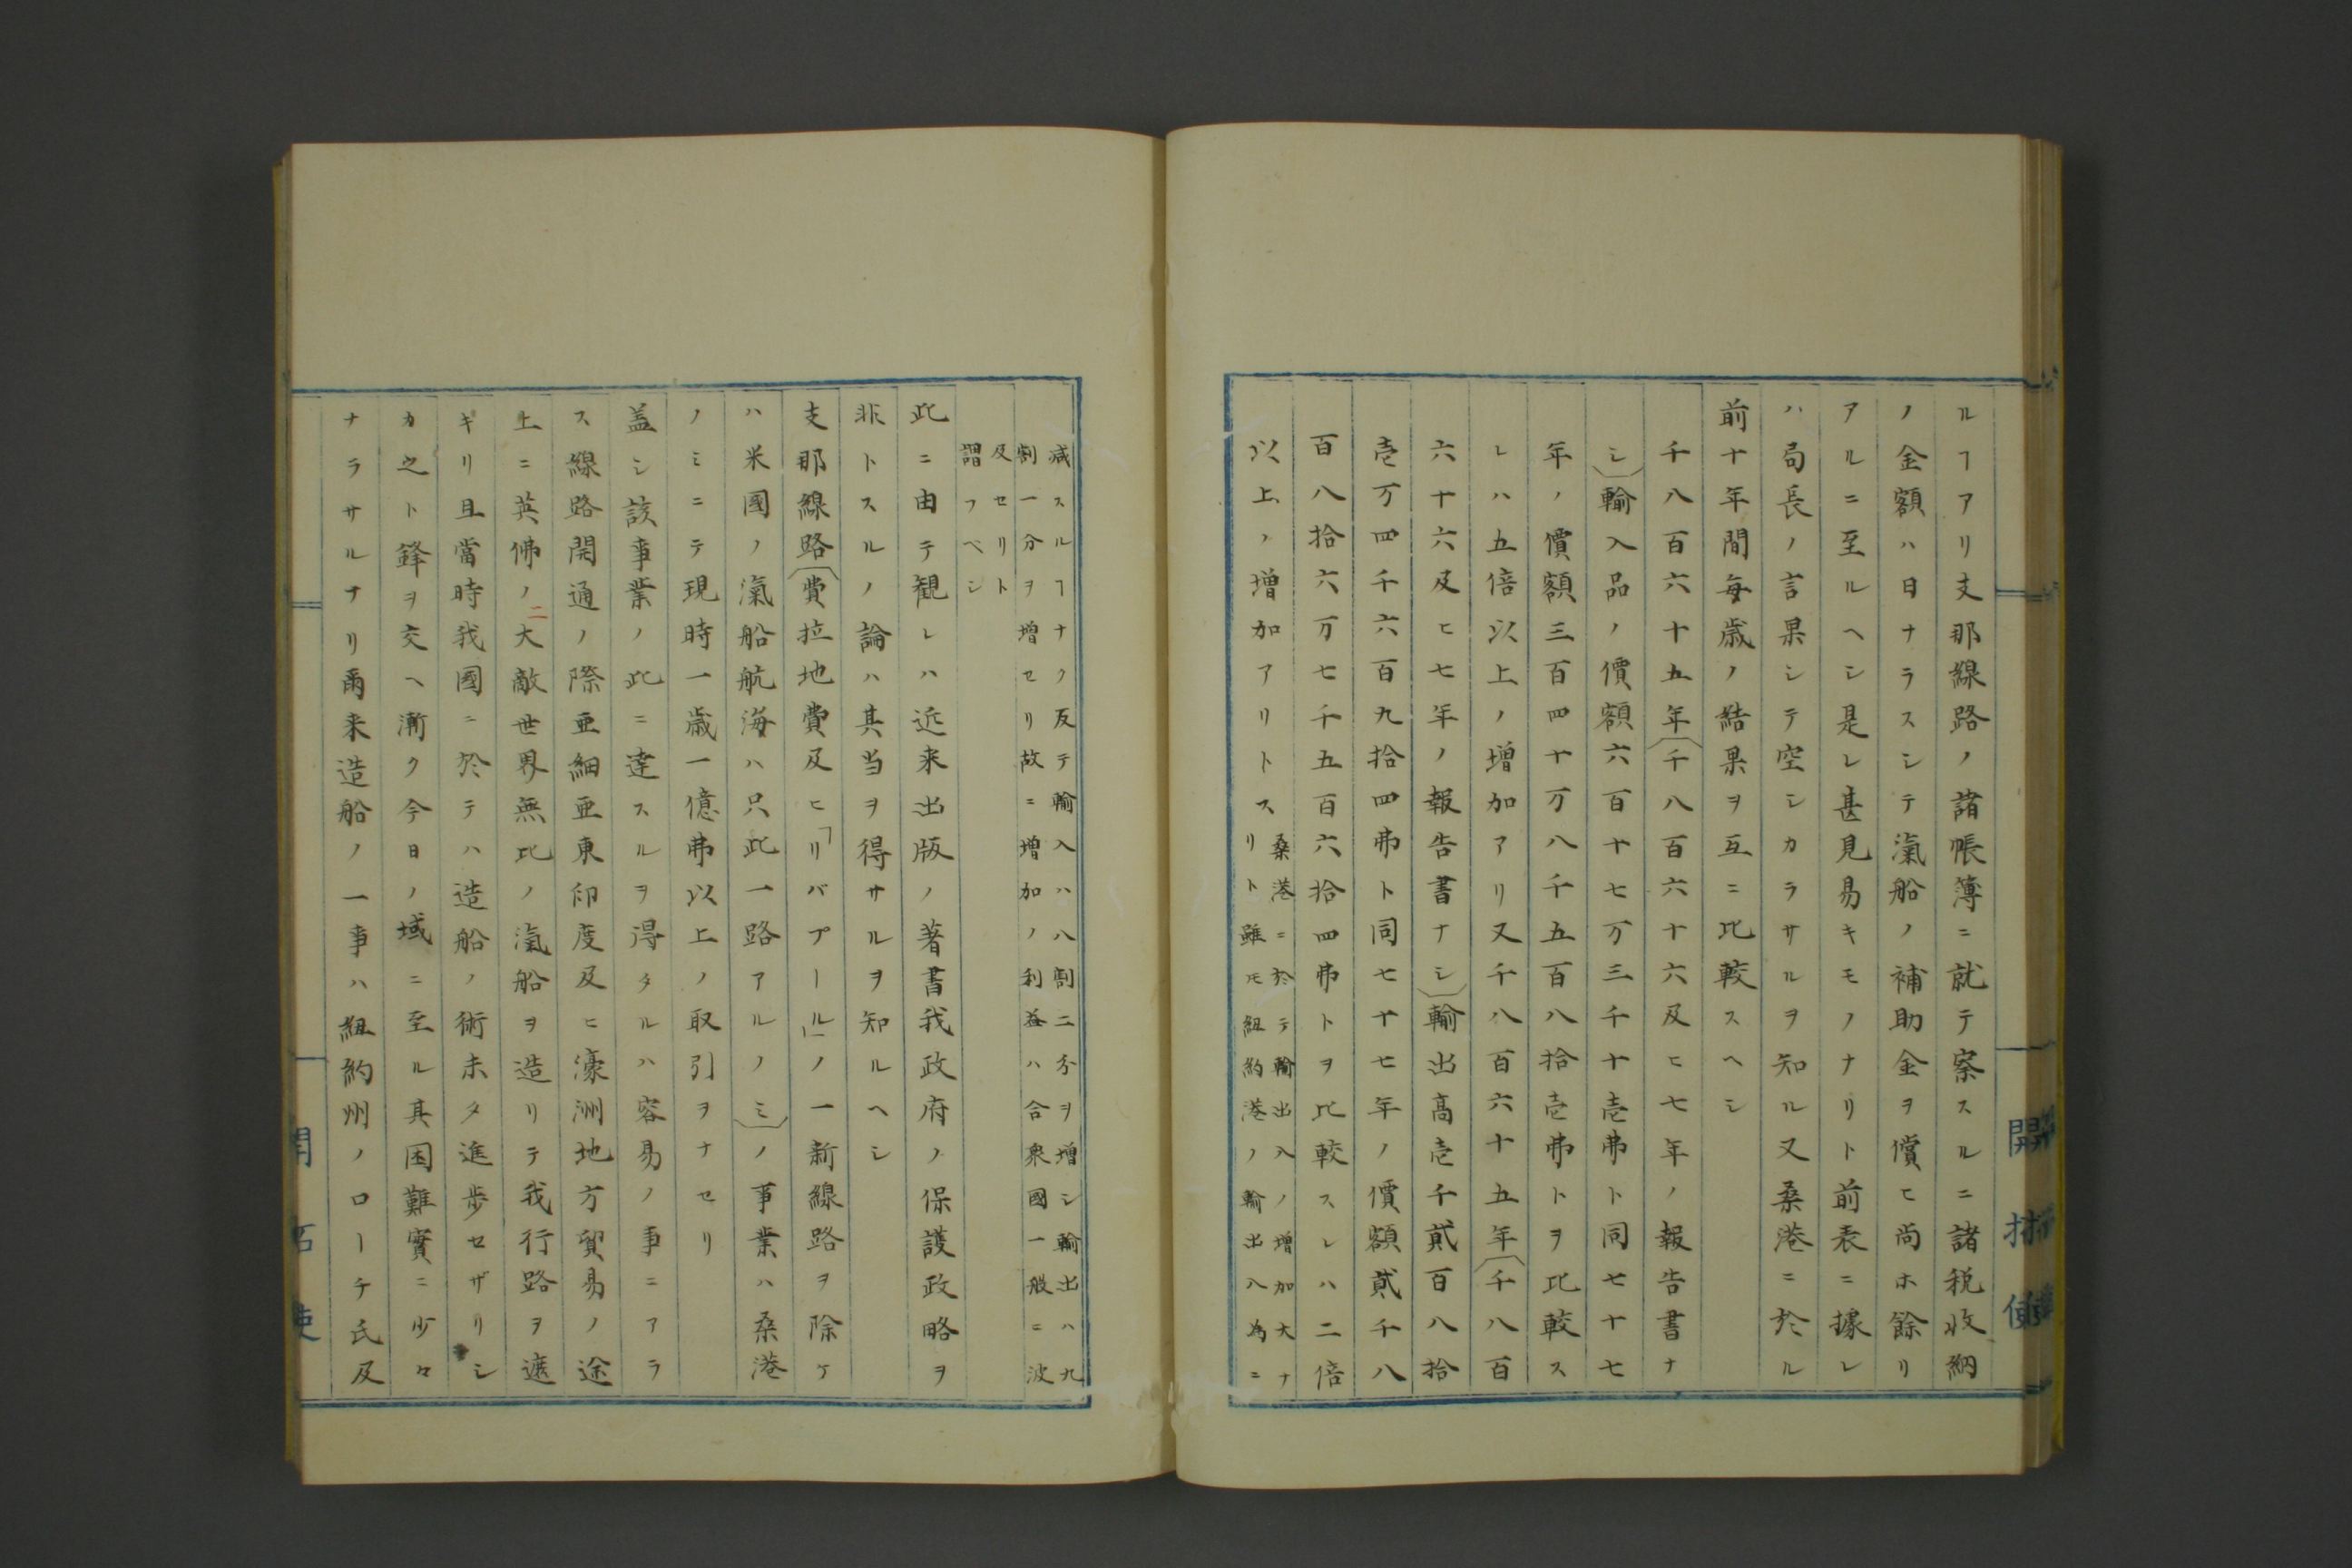 ルヿアリ支那線路ノ諸帳簿ニ就テ察スルニ諸税收納
ノ金額ハ日ナラスシテ滊船ノ補助金ヲ償ヒ尚ホ餘リ
アルニ至ルヘシ是レ甚見易キモノナリト前表ニ據レ
ハ局長ノ言果シテ空シカラサルヲ知ル又桑港ニ於ル
前十年間毎歳ノ結果ヲ互ニ比較スヘシ
千八百六十五年〔千八百六十六及ヒ七年ノ報告書ナ
シ〕輸入品ノ價額六百十七万三千十壱弗ト同七十七
年ノ價額三百四十万八千五百八拾壱弗トヲ比較ス
レハ五倍以上ノ増加アリ又千八百六十五年〔千八百
六十六及ヒ七年ノ報告書ナシ〕輸出高壱千貳百八拾
壱万四千六百九拾四弗ト同七十七年ノ價額貳千八
百八拾六万七千五百六拾四弗トヲ比較スレハ二倍
以上ノ増加アリトス
桑港ニ於テ輸出入ノ増加大ナ
リト雖𪜈紐約港ノ輸出入為ニ
減スルヿナク反テ輸入ハ八割二分ヲ増シ輸出ハ九
割一分ヲ増セリ故ニ増加ノ利益ハ合衆國一般ニ波
及セリト
謂フベシ
此ニ由テ観レハ近来出版ノ著書我政府ノ保護政略ヲ
非トスルノ論ハ其当ヲ得サルヲ知ルヘシ
支那線路〔費拉地費及ヒ「リバプール」ノ一新線路ヲ除ケ
ハ米國ノ滊船航海ハ只此一路アルノミ〕ノ事業ハ桑港
ノミニテ現時一歳一億弗以上ノ取引ヲナセリ
盖シ該事業ノ此ニ達スルヲ得タルハ容易ノ事ニアラ
ス線路開通ノ際亜細亜東印度及ヒ濠洲地方貿易ノ途
上ニ英佛ノ二大敵世界無比ノ滊船ヲ造リテ我行路ヲ遮
キリ且當時我國ニ於テハ造船ノ術未タ進歩セザリシ
カ之ト鋒ヲ交ヘ漸ク今日ノ域ニ至ル其困難實ニ少々
ナラサルナリ爾来造船ノ一事ハ紐約州ノローチ氏及
開拓使
開拓使